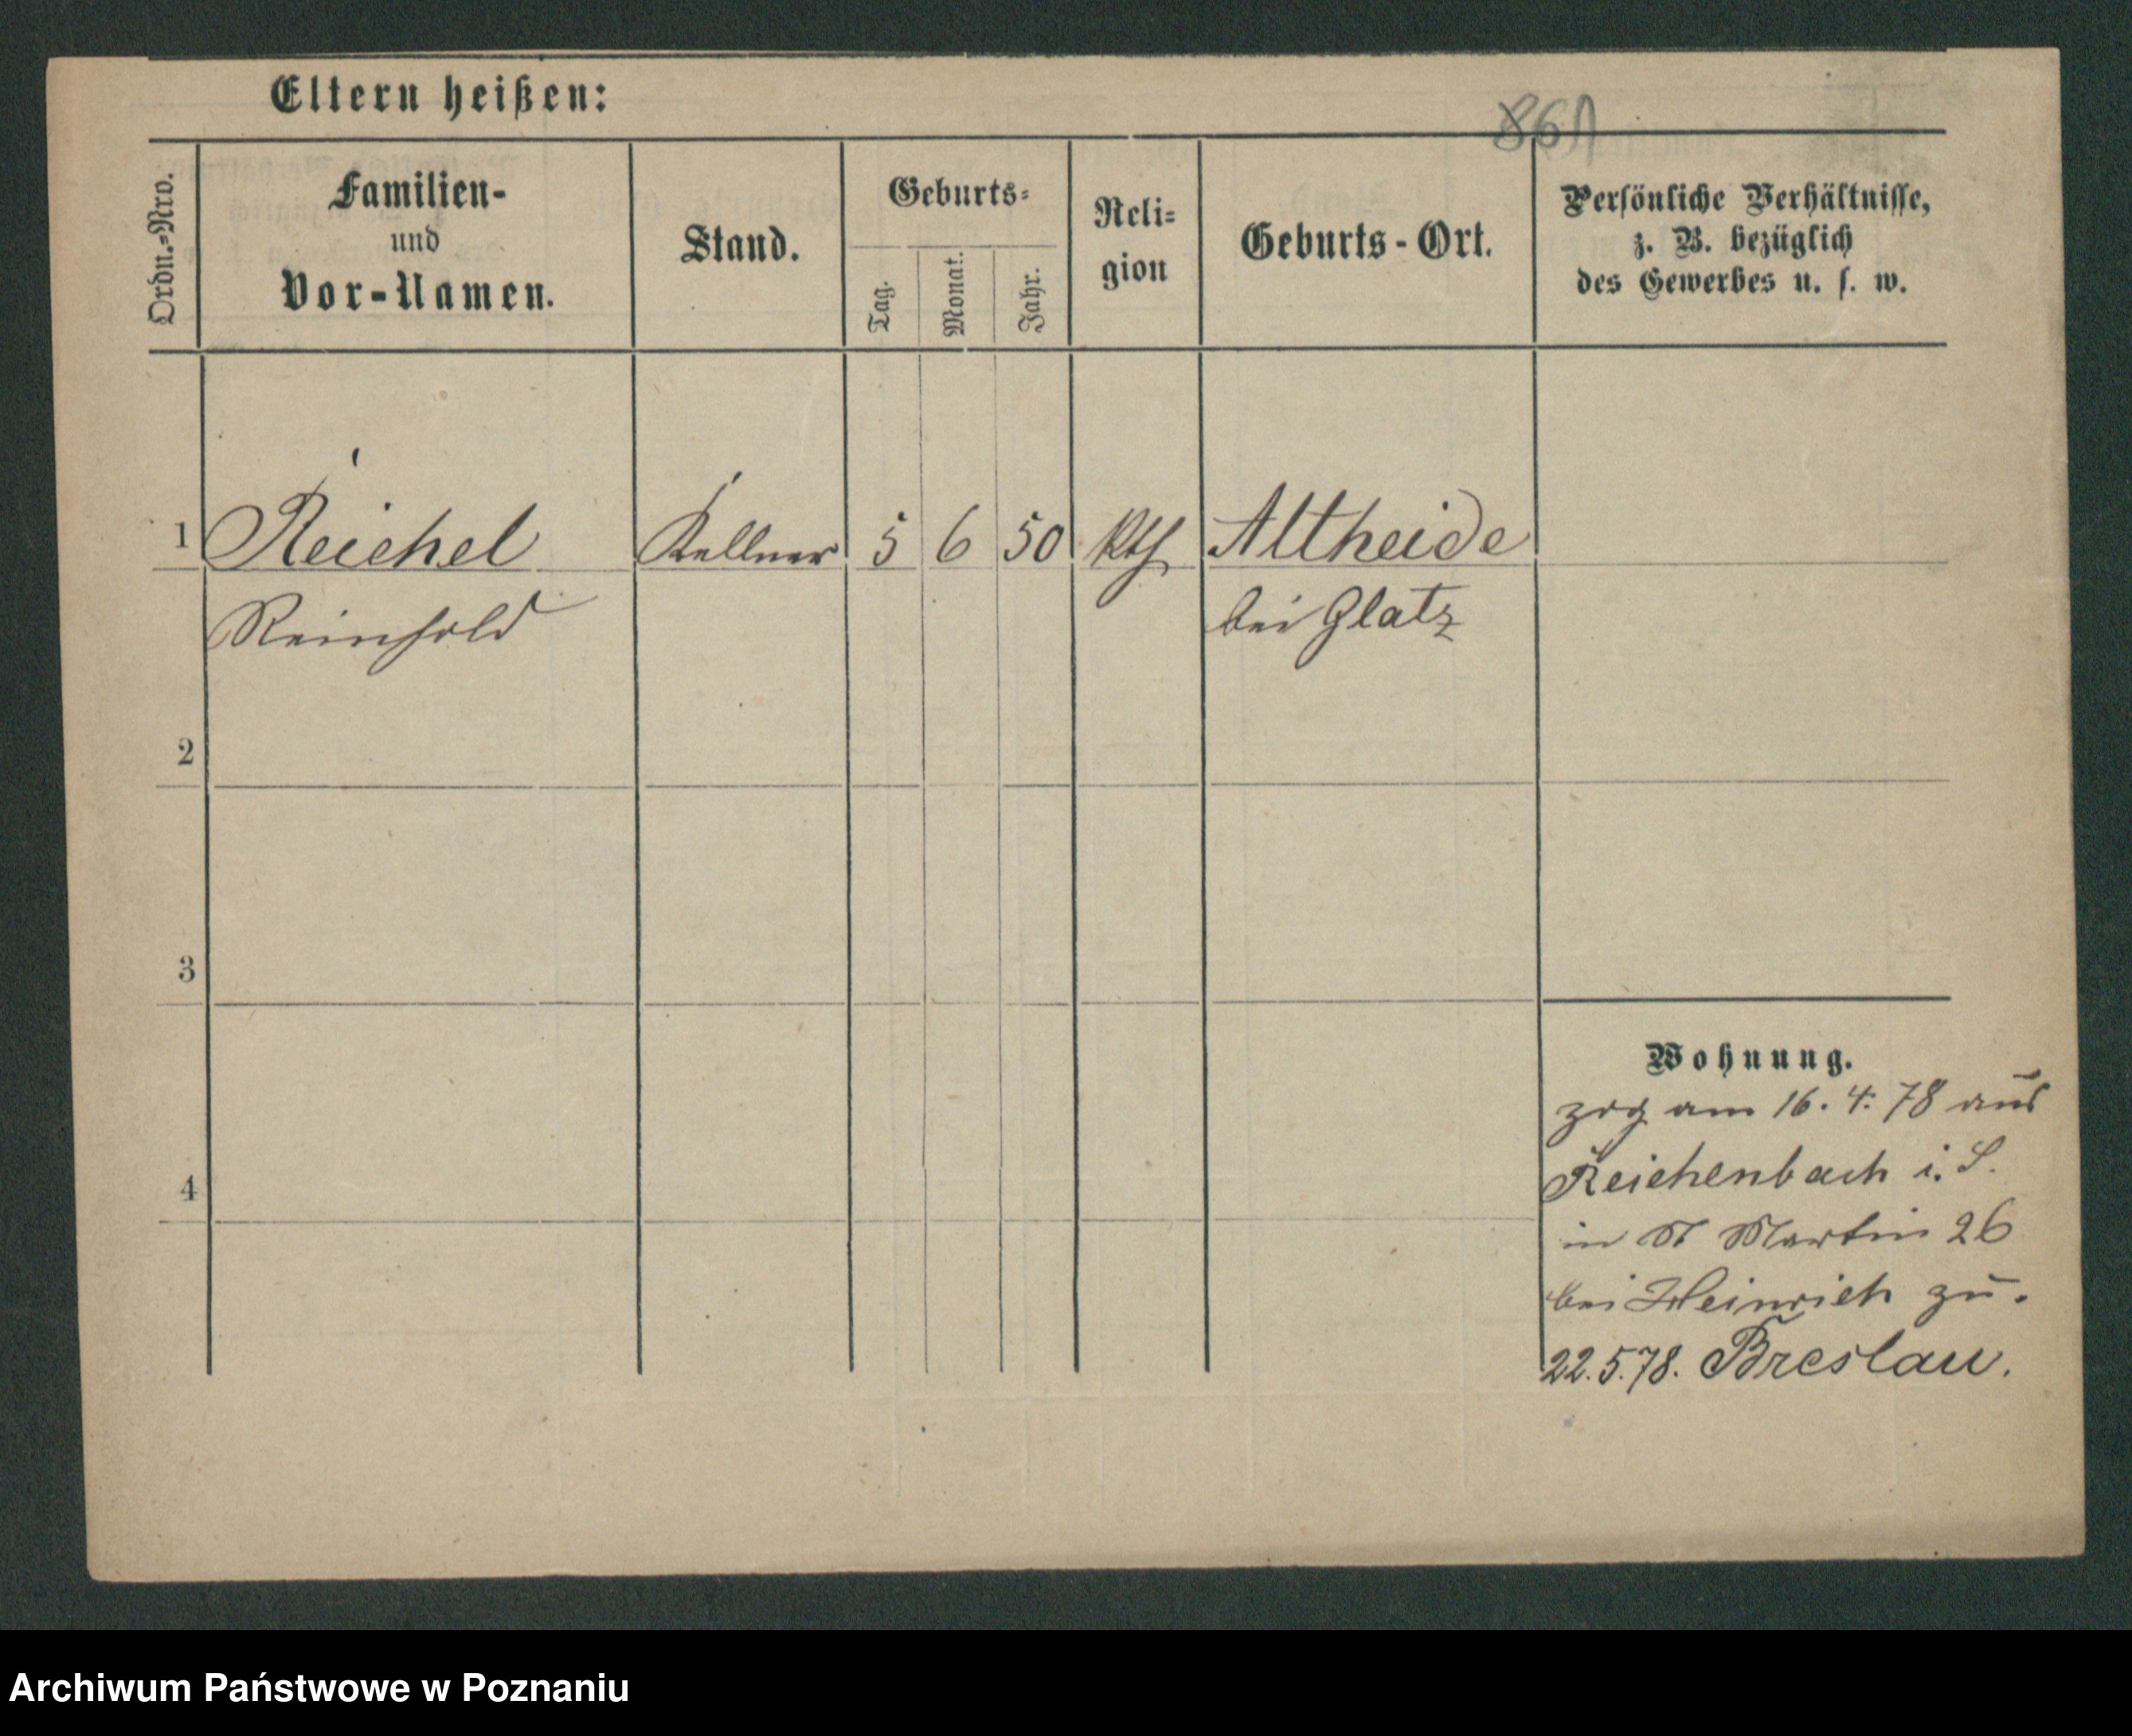 Eltern heißen:
861
Ordn.-Nro.
Familien-
und
Vor-Namen.
Stand.
Geburts-
Tag.
Monat.
Jahr.
Reli-
gion
Geburts-Ort.
Persönliche Verhältnisse,
z. B. bezüglich
des Gewerbes u. s. w.
1 Reichel Kellner 5 6 50 kth Altheide
Reinhold bei Glatz
2
3
4
Wohnung.
zog am 16. 4. 78 aus
Reichenbach i. S.
in St Martin 26
bei Heinrich zu.
22.5.78. Breslau.
Archiwum Państwowe w Poznaniu